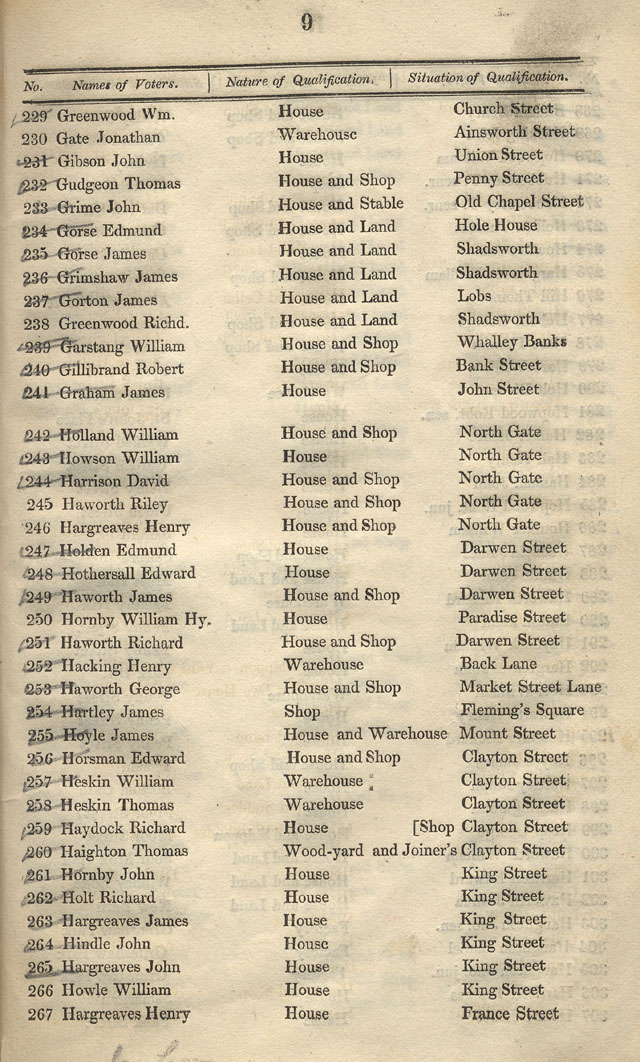 9
No. Names of Voters. | Nature of Qualification. | Situation of Qualification.
229 Greenwood Wm. House Church Street
230 Gate Jonathan Warehouse Ainsworth Street
231 Gibson John House Union Street
232 Gudgeon Thomas House and Shop Penny Street
233 Grime John House and Stable Old Chapel Street
234 Gorse Edmund House and Land Hole House
235 Gorse James House and Land Shadsworth
236 Grimshaw James House and Land Shadsworth
237 Gorton James House and Land Lobs
238 Greenwood Richd. House and Land Shadsworth
239 Garstang William House and Shop Whalley Banks
240 Gillibrand Robert House and Shop Bank Street
241 Graham James House John Street
242 Holland William House and Shop North Gate
243 Howson William House North Gate
244 Harrison David House and Shop North Gate
245 Haworth Riley House and Shop North Gate
246 Hargreaves Henry House and Shop North Gate
247 Holden Edmund House Darwen Street
248 Hothersall Edward House Darwen Street
249 Haworth James House and Shop Darwen Street
250 Hornby William Hy. House Paradise Street
251 Haworth Richard House and Shop Darwen Street
252 Hacking Henry Warehouse Back Lane
253 Haworth George House and Shop Market Street Lane
254 Hartley James Shop Fleming's Square
255 Hoyle James House and Warehouse Mount Street
256 Horsman Edward House and Shop Clayton Street
257 Heskin William Warehouse Clayton Street
258 Heskin Thomas Warehouse Clayton Street
259 Haydock Richard House [Shop Clayton Street
260 Haighton Thomas Wood-yard and Joiner's Clayton Street
261 Hornby John House King Street
262 Holt Richard House King Street
263 Hargreaves James House King Street
264 Hindle John House King Street
265 Hargreaves John House King Street
266 Howle William House King Street
267 Hargreaves Henry House France Street